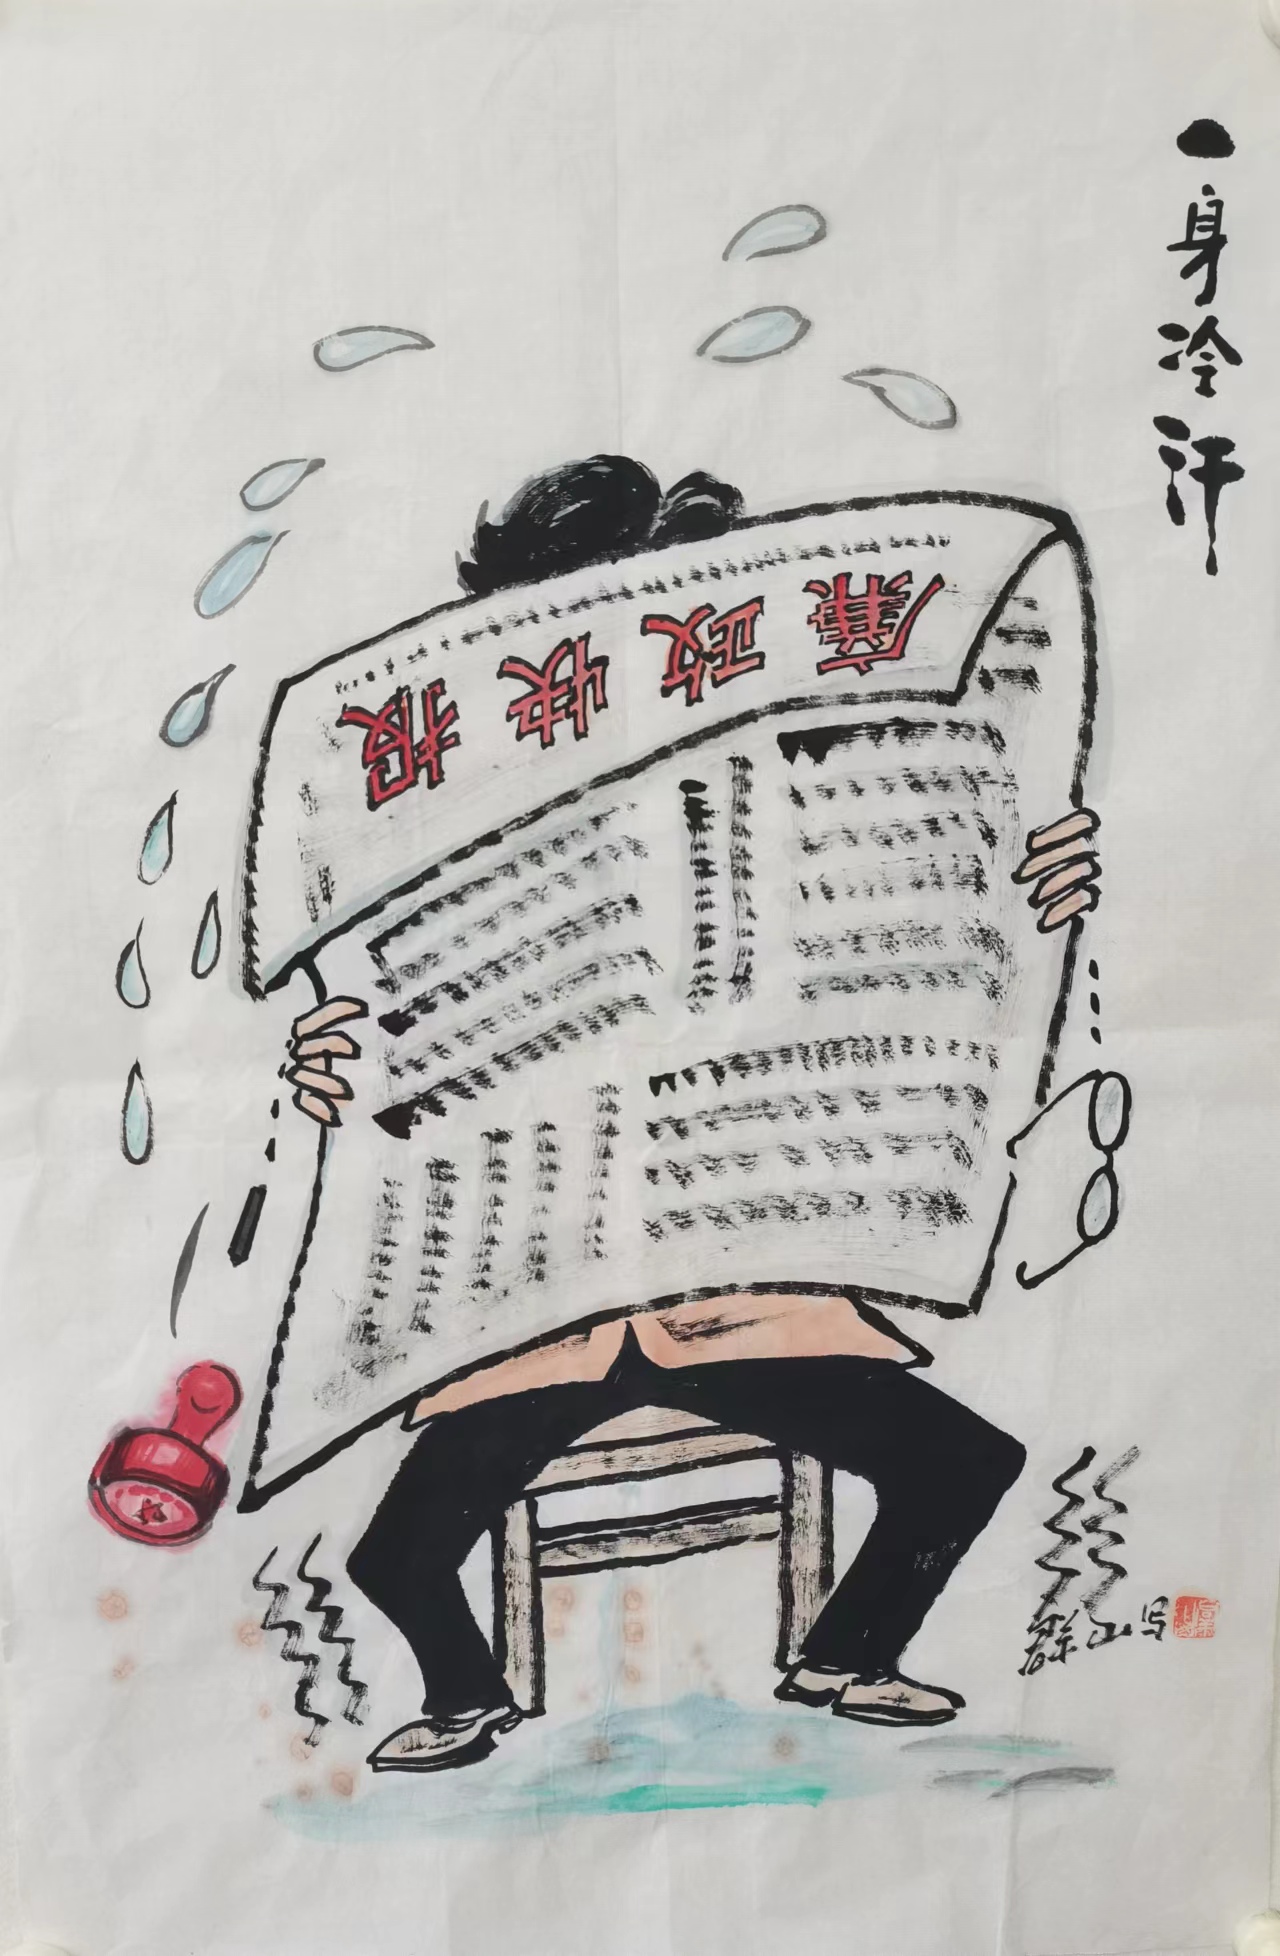 一身冷汗
廉政快报
群山写